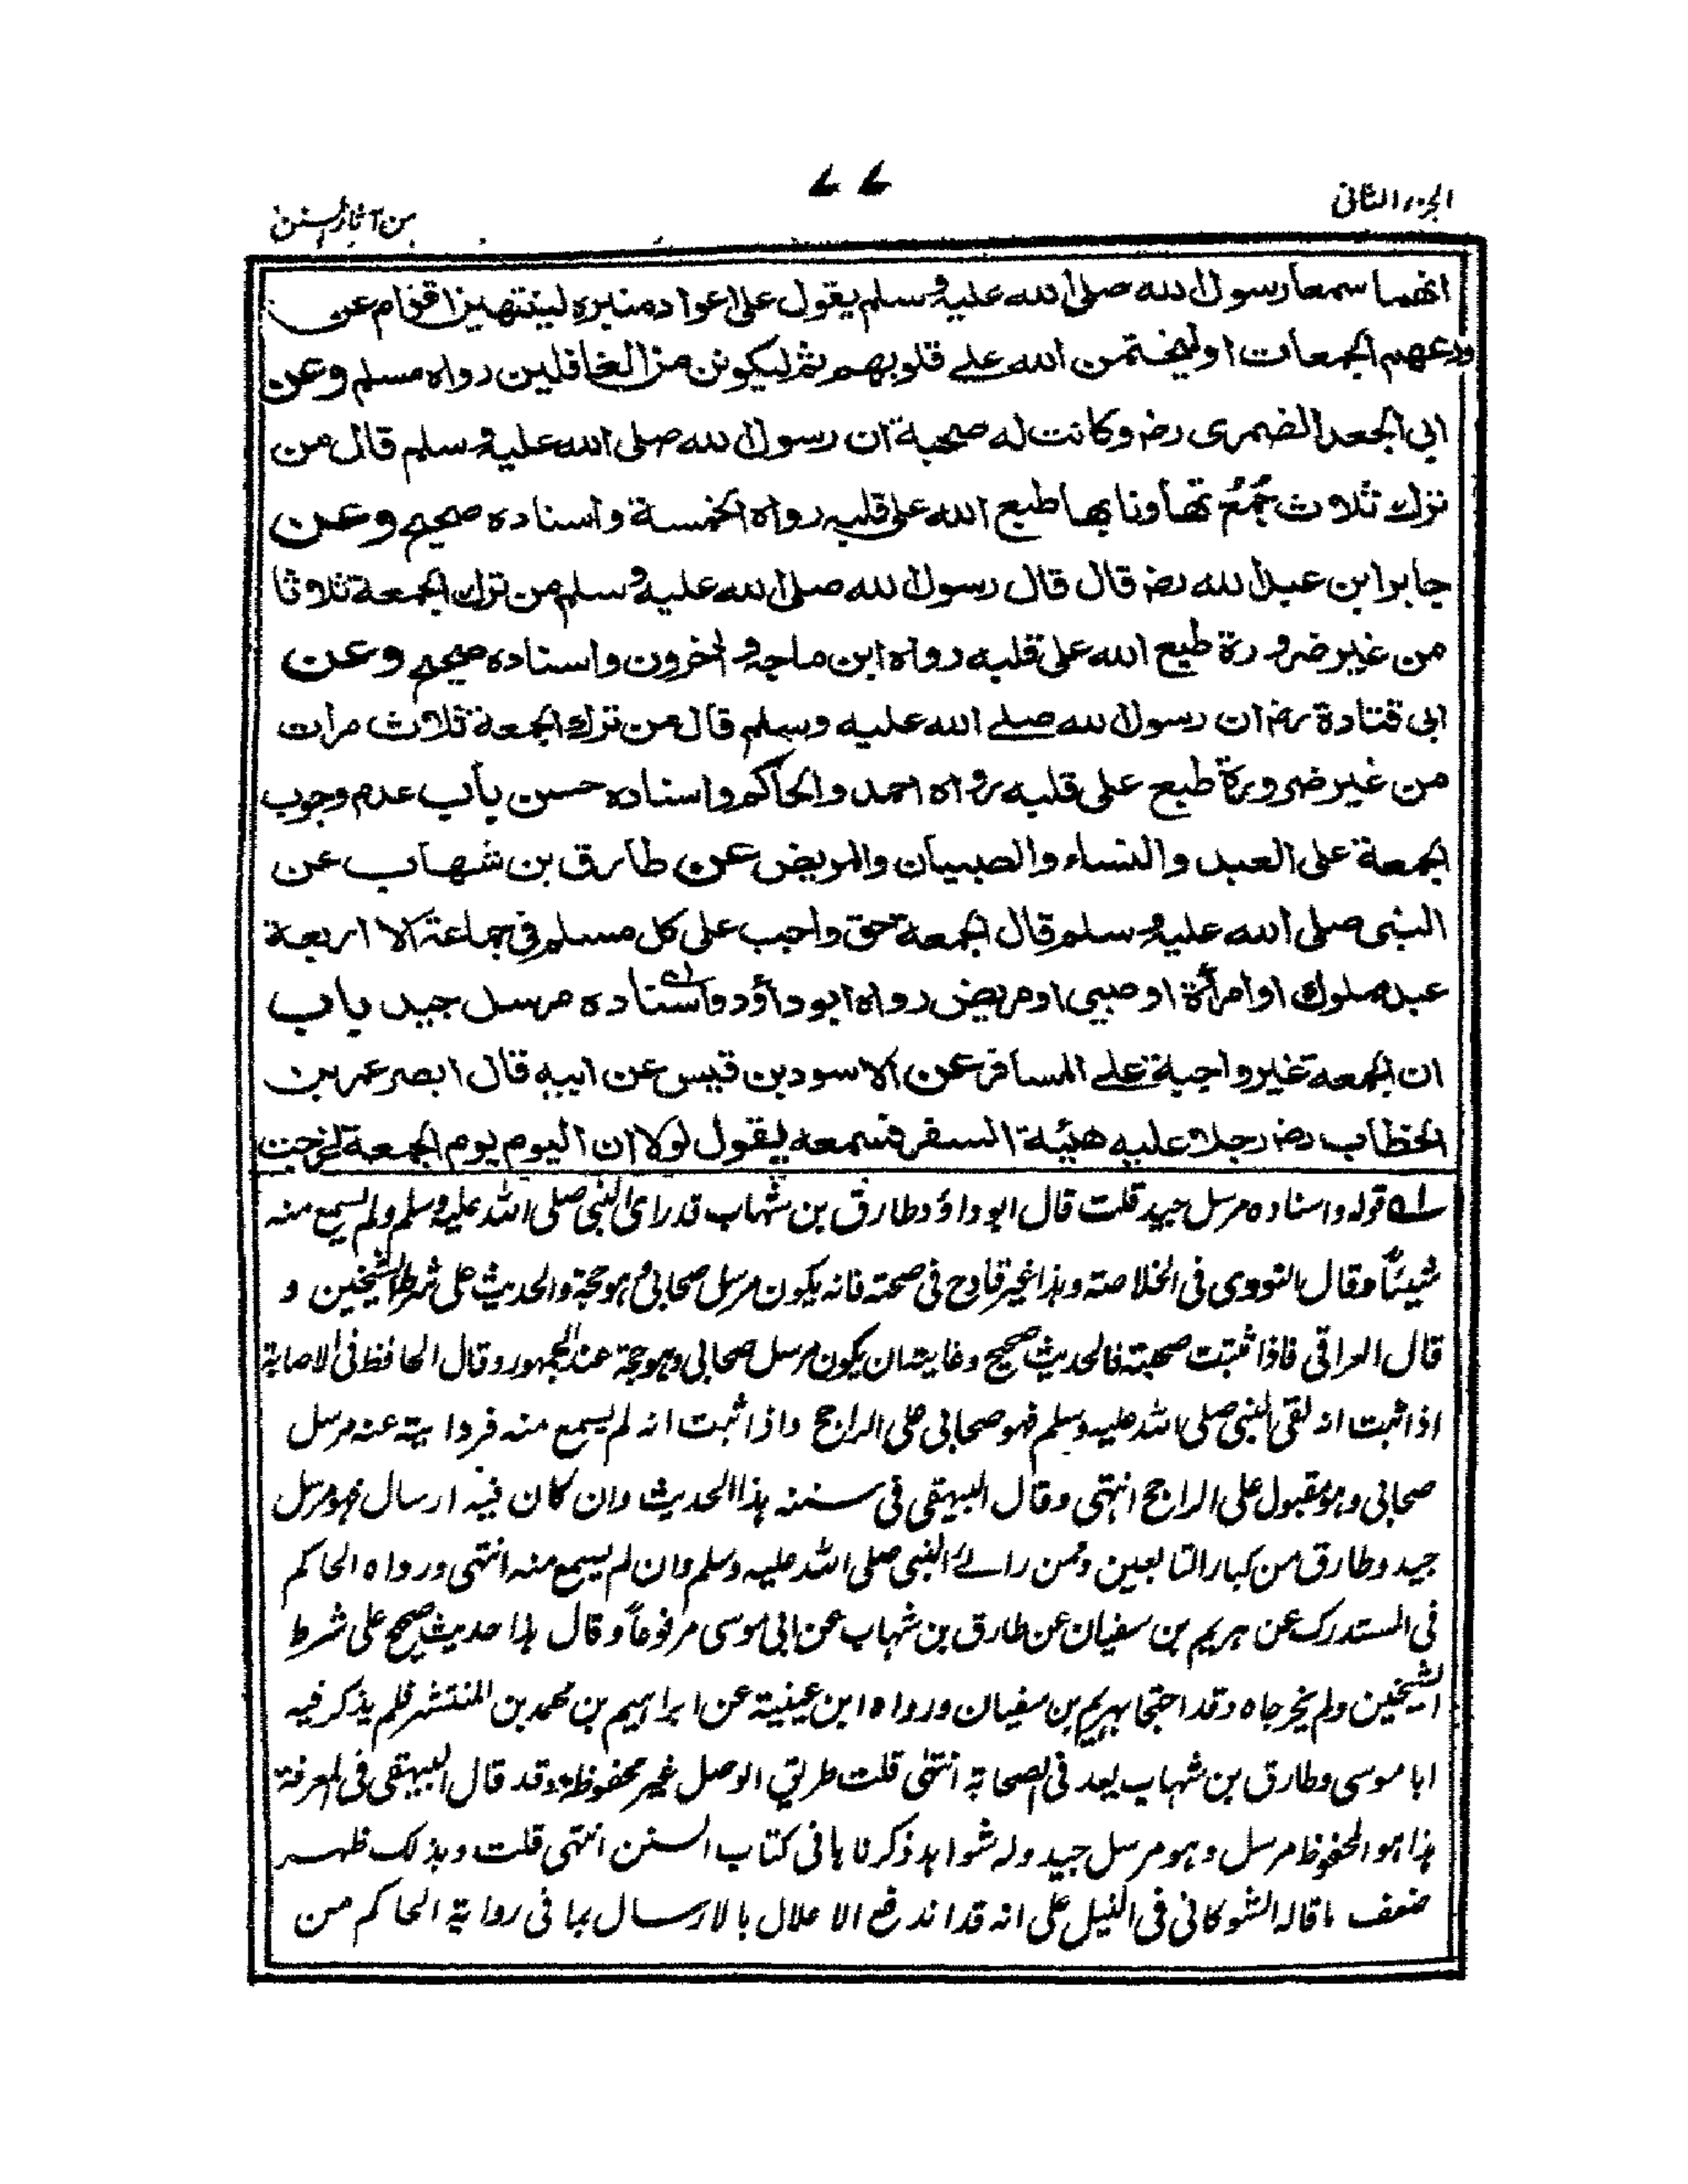 الجزء الثانی
۷۷
من آثار السنن
انهما سمعا رسول الله صلی الله علیه وسلم یقول علی اعواد منبره لینتهین اقوام عن
ودعهم الجمعات او لیختمن الله علے قلوبهم ثم لیکونن من الغافلین رواه مسلم وعن
ابی الجعد الضمری رضہ وکانت له صحبة ان رسول الله صلی الله علیه وسلم قال من
ترك ثلاث جُمَعٍ تهاونا بها طبع الله علی قلبه رواه الخمسة واسناده صحیح وعن
جابر ابن عبد الله رضہ قال قال رسول الله صلی الله علیه وسلم من ترك الجمعة ثلاثا
من غیر ضرورة طبع الله علی قلبه رواه ابن ماجة واٰخرون واسناده صحیح وعن
ابی قتادة رضہ ان رسول الله صلے الله علیه وسلم قال من ترك الجمعة ثلاث مرات
من غیر ضرورة طبع علی قلبه رواه احمد والحاکم واسناده حسن باب عدم وجوب
الجمعة علی العبد والنساء والصبیان والمریض عن طارق بن شهاب عن
النبی صلی الله علیه وسلم قال الجمعة حق واجب علی کل مسلم فی جماعة الا اربعة
عبد مملوك او امرأة او صبی او مریض رواه ابو داؤد واسناده مرسل جید باب
ان الجمعة غیر واجبة علے المسافر عن الاسود بن قیس عن ابیه قال ابصر عمر بن
الخطاب رضہ رجلا علیه هیئة السفر فسمعه یقول لولا ان الیوم یوم الجمعة لخرجت
۱ قوله واسناده مرسل جید قلت قال ابو داؤد طارق بن شهاب قد رای النبی صلی الله علیه وسلم ولم یسمع منه
شیئاً وقال النووی فی الخلاصة وہذا غیر قادح فی صحته فانه یکون مرسل صحابی وہو حجة والحدیث علی شرط الشیخین و
قال العراقی فاذا ثبتت صحبته فالحدیث صحیح وغایته ان یکون مرسل صحابی وہو حجة عند الجمهور وقال الحافظ فی الاصابة
اذا ثبت انه لقی النبی صلی الله علیه وسلم فهو صحابی علی الراجح واذا ثبت انه لم یسمع منه فروایته عنه مرسل
صحابی وہو مقبول علی الراجح انتهی وقال البیہقی فی سننه ہذا الحدیث وان کان فیه ارسال فهو مرسل
جید وطارق من کبار التابعین وممن رائے النبی صلی الله علیه وسلم وان لم یسمع منه انتهی ورواه الحاکم
فی المستدرک عن ہریم بن سفیان عن طارق بن شهاب عن ابی موسی مرفوعاً وقال ہذا حدیث صحیح علی شرط
الشیخین ولم یخرجاه وقد احتجا بہریم بن سفیان ورواه ابن عیینة عن ابراہیم بن محمد بن المنتشر فلم یذکر فیه
ابا موسی وطارق بن شهاب یعد فی الصحابة انتهٰی قلت طریق الوصل غیر محفوظة وقد قال البیہقی فی المعرفة
ہذا ہو المحفوظ مرسل وہو مرسل جید وله شواہد ذکرناہا فی کتاب السنن انتهی قلت وبذلک ظہر
ضعف ما قاله الشوکانی فی النیل علی انه قد اندفع الاعلال بالارسال بما فی روایة الحاکم من